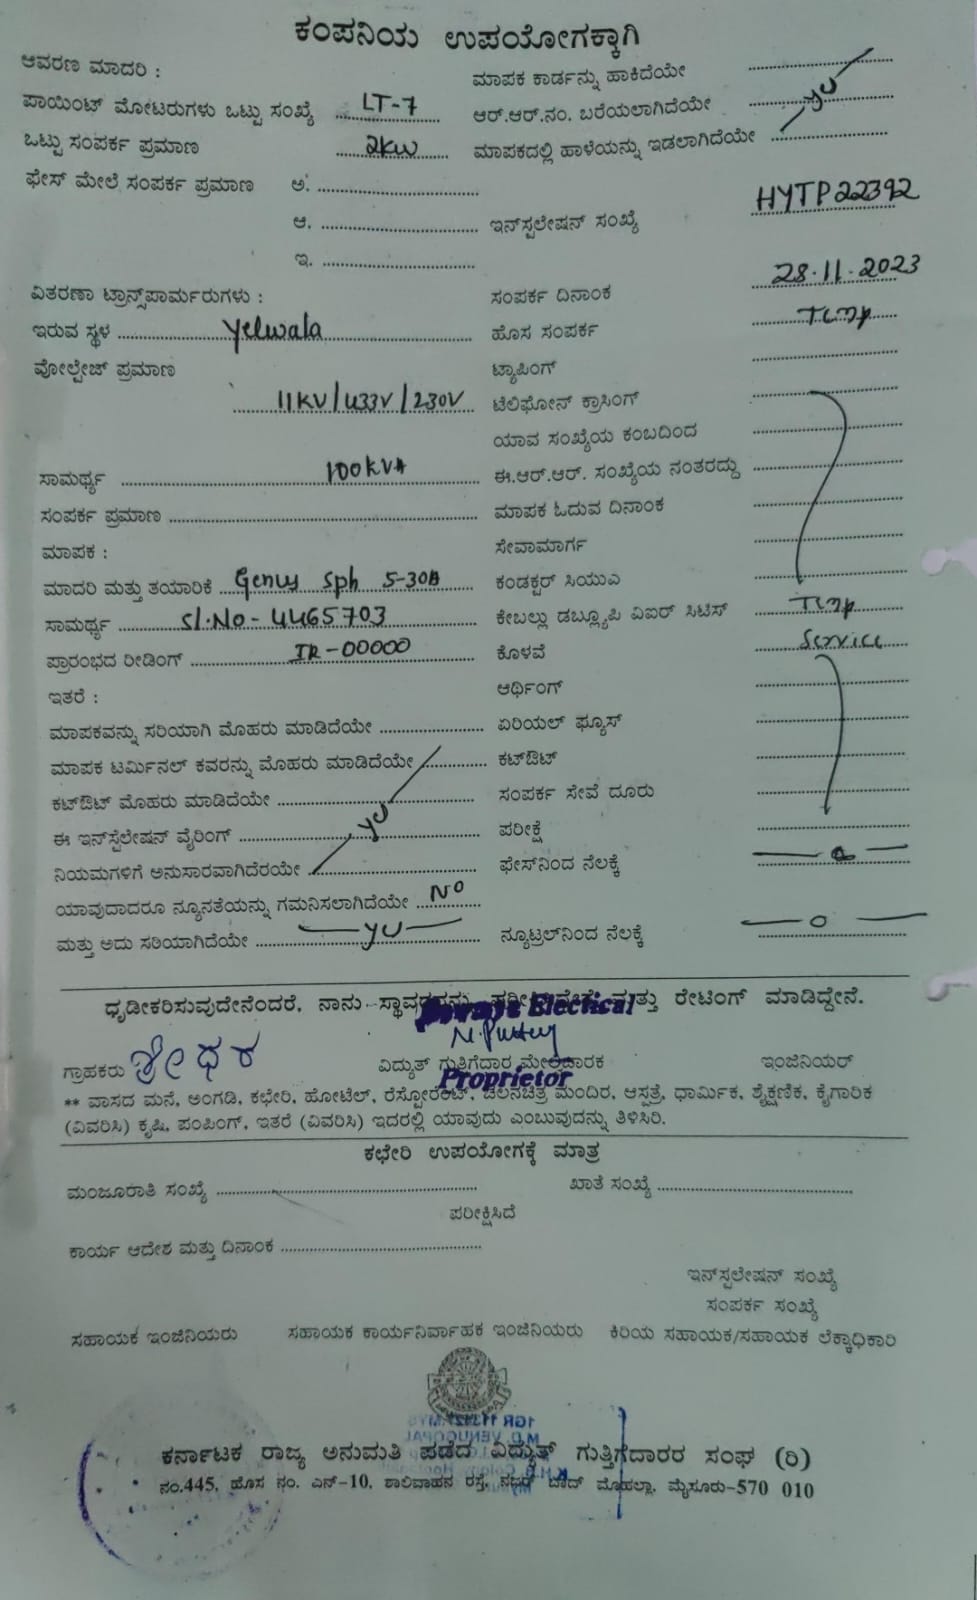 ಕಂಪನಿಯ ಉಪಯೋಗಕ್ಕಾಗಿ
ಆವರಣ ಮಾದರಿ :
ಮಾಪಕ ಕಾರ್ಡನ್ನು ಹಾಕಿದೆಯೇ
ಪಾಯಿಂಟ್ ಮೋಟರುಗಳು ಒಟ್ಟು ಸಂಖ್ಯೆ LT-7
ಆರ್.ಆರ್.ನಂ. ಬರೆಯಲಾಗಿದೆಯೇ
ಒಟ್ಟು ಸಂಪರ್ಕ ಪ್ರಮಾಣ 2kw
ಮಾಪಕದಲ್ಲಿ ಹಾಳೆಯನ್ನು ಇಡಲಾಗಿದೆಯೇ
ಫೇಸ್ ಮೇಲೆ ಸಂಪರ್ಕ ಪ್ರಮಾಣ ಅ.
ಆ.
ಇನ್‌ಸ್ಪಲೇಷನ್ ಸಂಖ್ಯೆ HYTP22392
ಇ.
ವಿತರಣಾ ಟ್ರಾನ್ಸ್‌ಪಾರ್ಮರುಗಳು :
ಸಂಪರ್ಕ ದಿನಾಂಕ 28.11.2023
ಇರುವ ಸ್ಥಳ Yelwala
ಹೊಸ ಸಂಪರ್ಕ
ವೋಲ್ಟೇಜ್ ಪ್ರಮಾಣ
ಟ್ಯಾಪಿಂಗ್
11KV/433V/230V
ಟೆಲಿಫೋನ್ ಕ್ರಾಸಿಂಗ್
ಯಾವ ಸಂಖ್ಯೆಯ ಕಂಬದಿಂದ
ಸಾಮರ್ಥ್ಯ 100KVA
ಈ.ಆರ್.ಆರ್. ಸಂಖ್ಯೆಯ ನಂತರದ್ದು
ಸಂಪರ್ಕ ಪ್ರಮಾಣ
ಮಾಪಕ ಓದುವ ದಿನಾಂಕ
ಮಾಪಕ :
ಸೇವಾಮಾರ್ಗ
ಮಾದರಿ ಮತ್ತು ತಯಾರಿಕೆ Genus Sph 5-30A
ಕಂಡಕ್ಟರ್ ಸಿಯುಎ
ಸಾಮರ್ಥ್ಯ Sl.No-4465703
ಕೇಬಲ್ಲು ಡಬ್ಲ್ಯೂಪಿ ವಿಐಆರ್ ಸಿಟಿಸ್
ಪ್ರಾರಂಭದ ರೀಡಿಂಗ್ IR-00000
ಕೊಳವೆ Service
ಇತರೆ :
ಆರ್ಥಿಂಗ್
ಮಾಪಕವನ್ನು ಸರಿಯಾಗಿ ಮೊಹರು ಮಾಡಿದೆಯೇ
ಏರಿಯಲ್ ಫ್ಯೂಸ್
ಮಾಪಕ ಟರ್ಮಿನಲ್ ಕವರನ್ನು ಮೊಹರು ಮಾಡಿದೆಯೇ
ಕಟ್‌ಔಟ್
ಕಟ್‌ಔಟ್ ಮೊಹರು ಮಾಡಿದೆಯೇ
ಸಂಪರ್ಕ ಸೇವೆ ದೂರು
ಈ ಇನ್‌ಸ್ಪೆಲೇಷನ್ ವೈರಿಂಗ್
ಪರೀಕ್ಷೆ
ನಿಯಮಗಳಿಗೆ ಅನುಸಾರವಾಗಿದೆರಯೇ
ಫೇಸ್‌ನಿಂದ ನೆಲಕ್ಕೆ
ಯಾವುದಾದರೂ ನ್ಯೂನತೆಯನ್ನು ಗಮನಿಸಲಾಗಿದೆಯೇ NO
ಮತ್ತು ಅದು ಸರಿಯಾಗಿದೆಯೇ
ನ್ಯೂಟ್ರಲ್‌ನಿಂದ ನೆಲಕ್ಕೆ
ಧೃಡೀಕರಿಸುವುದೇನೆಂದರೆ, ನಾನು ಮತ್ತು ರೇಟಿಂಗ್ ಮಾಡಿದ್ದೇನೆ.
Electical
ಗ್ರಾಹಕರು ಶ್ರೀಧರ
ವಿದ್ಯುತ್ ಗುತ್ತಿಗೆದಾರ ಮೇಲ್ವಿದಾರಕ
ಇಂಜಿನಿಯರ್
Proprietor
** ವಾಸದ ಮನೆ, ಅಂಗಡಿ, ಕಛೇರಿ, ಹೋಟೆಲ್, ರೆಸ್ಟೋರೆಂಟ್, ಚಲನಚಿತ್ರ ಮಂದಿರ, ಆಸ್ಪತ್ರೆ, ಧಾರ್ಮಿಕ, ಶೈಕ್ಷಣಿಕ, ಕೈಗಾರಿಕ
(ವಿವರಿಸಿ) ಕೃಷಿ, ಪಂಪಿಂಗ್, ಇತರೆ (ವಿವರಿಸಿ) ಇದರಲ್ಲಿ ಯಾವುದು ಎಂಬುವುದನ್ನು ತಿಳಿಸಿರಿ.
ಕಛೇರಿ ಉಪಯೋಗಕ್ಕೆ ಮಾತ್ರ
ಮಂಜೂರಾತಿ ಸಂಖ್ಯೆ
ಖಾತೆ ಸಂಖ್ಯೆ
ಪರೀಕ್ಷಿಸಿದೆ
ಕಾರ್ಯ ಆದೇಶ ಮತ್ತು ದಿನಾಂಕ
ಇನ್‌ಸ್ಪಲೇಷನ್ ಸಂಖ್ಯೆ
ಸಂಪರ್ಕ ಸಂಖ್ಯೆ
ಸಹಾಯಕ ಇಂಜಿನಿಯರು
ಸಹಾಯಕ ಕಾರ್ಯನಿರ್ವಾಹಕ ಇಂಜಿನಿಯರು
ಕಿರಿಯ ಸಹಾಯಕ/ಸಹಾಯಕ ಲೆಕ್ಕಾಧಿಕಾರಿ
ಕರ್ನಾಟಕ ರಾಜ್ಯ ಅನುಮತಿ ಪಡೆದ ವಿದ್ಯುತ್ ಗುತ್ತಿಗೆದಾರರ ಸಂಘ (ರಿ)
ನಂ.445, ಹೊಸ ನಂ. ಎನ್-10, ಶಾಲಿವಾಹನ ರಸ್ತೆ, ನಜರ್ ಬಾದ್ ಮೊಹಲ್ಲಾ, ಮೈಸೂರು-570 010